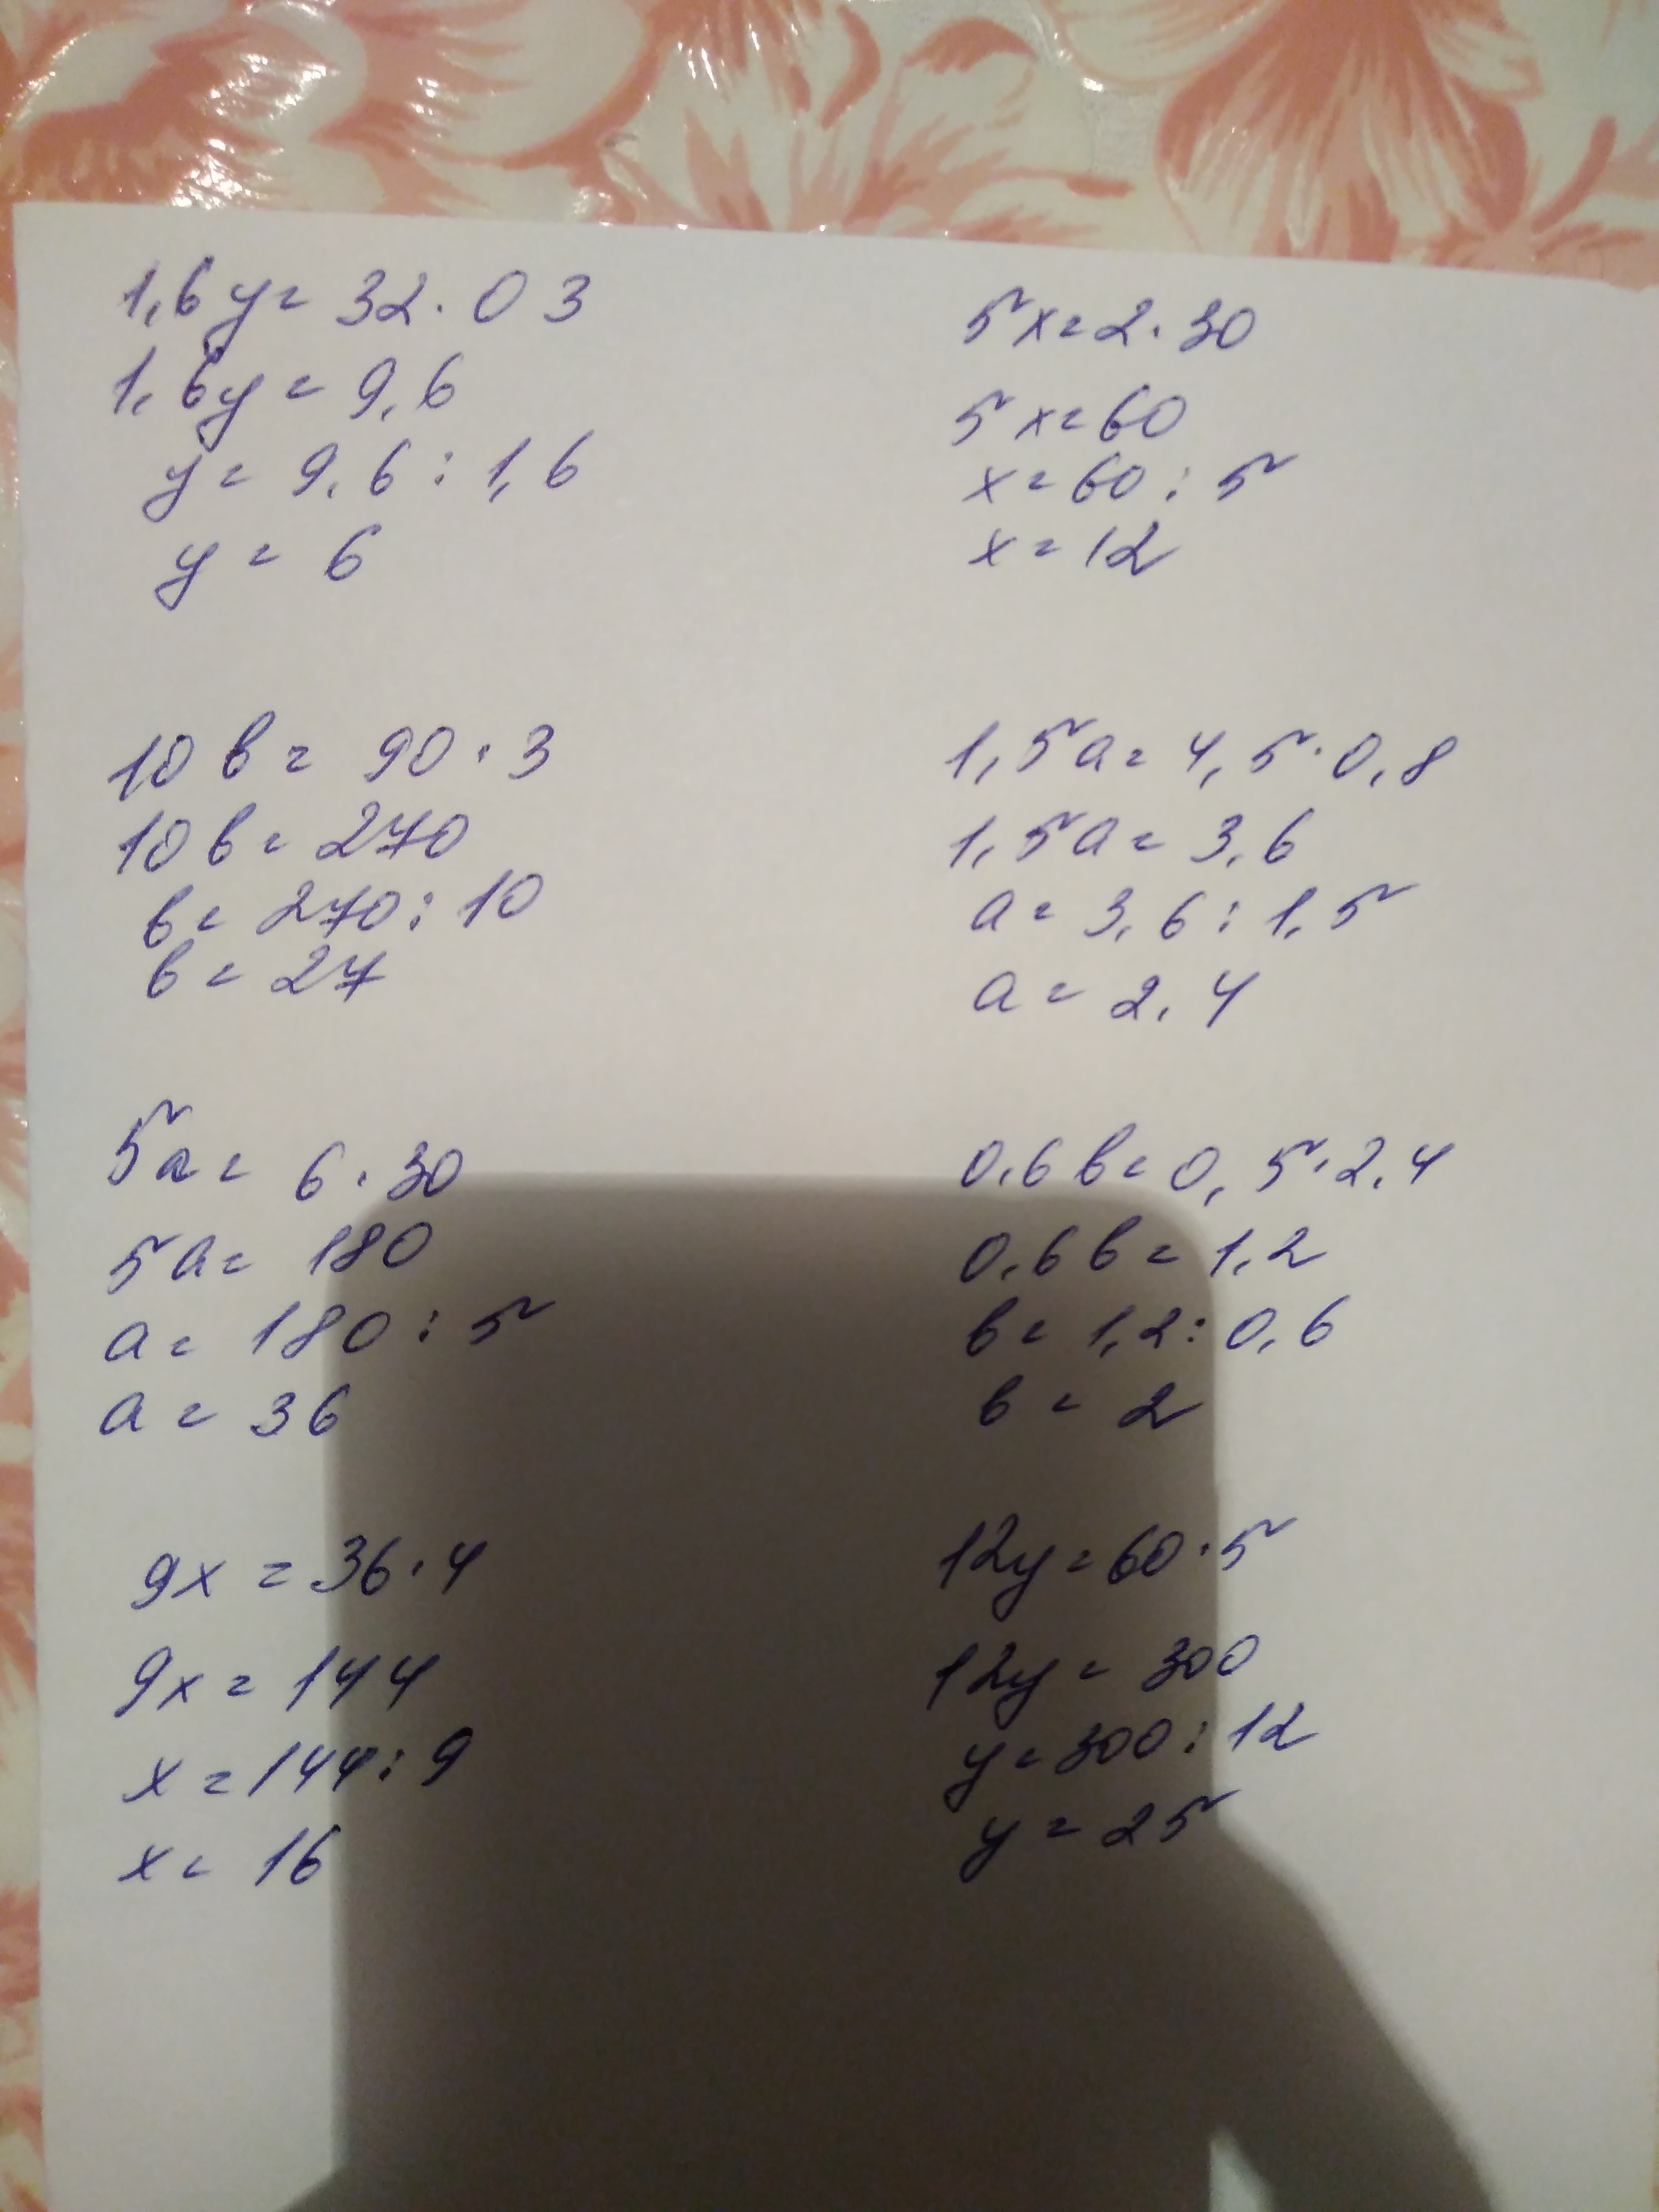 1,6y = 32 · 0 3
1,6y = 9,6
y = 9,6 : 1,6
y = 6
5x = 2 · 30
5x = 60
x = 60 : 5
x = 12
10 в = 90 · 3
10 в = 270
в = 270 : 10
в = 27
1,5a = 4,5 · 0,8
1,5a = 3,6
a = 3,6 : 1,5
a = 2,4
5a = 6 · 30
5a = 180
a = 180 : 5
a = 36
0,6 в = 0,5 · 2,4
0,6 в = 1,2
в = 1,2 : 0,6
в = 2
9x = 36 · 4
9x = 144
x = 144 : 9
x = 16
12y = 60 · 5
12y = 300
y = 300 : 12
y = 25